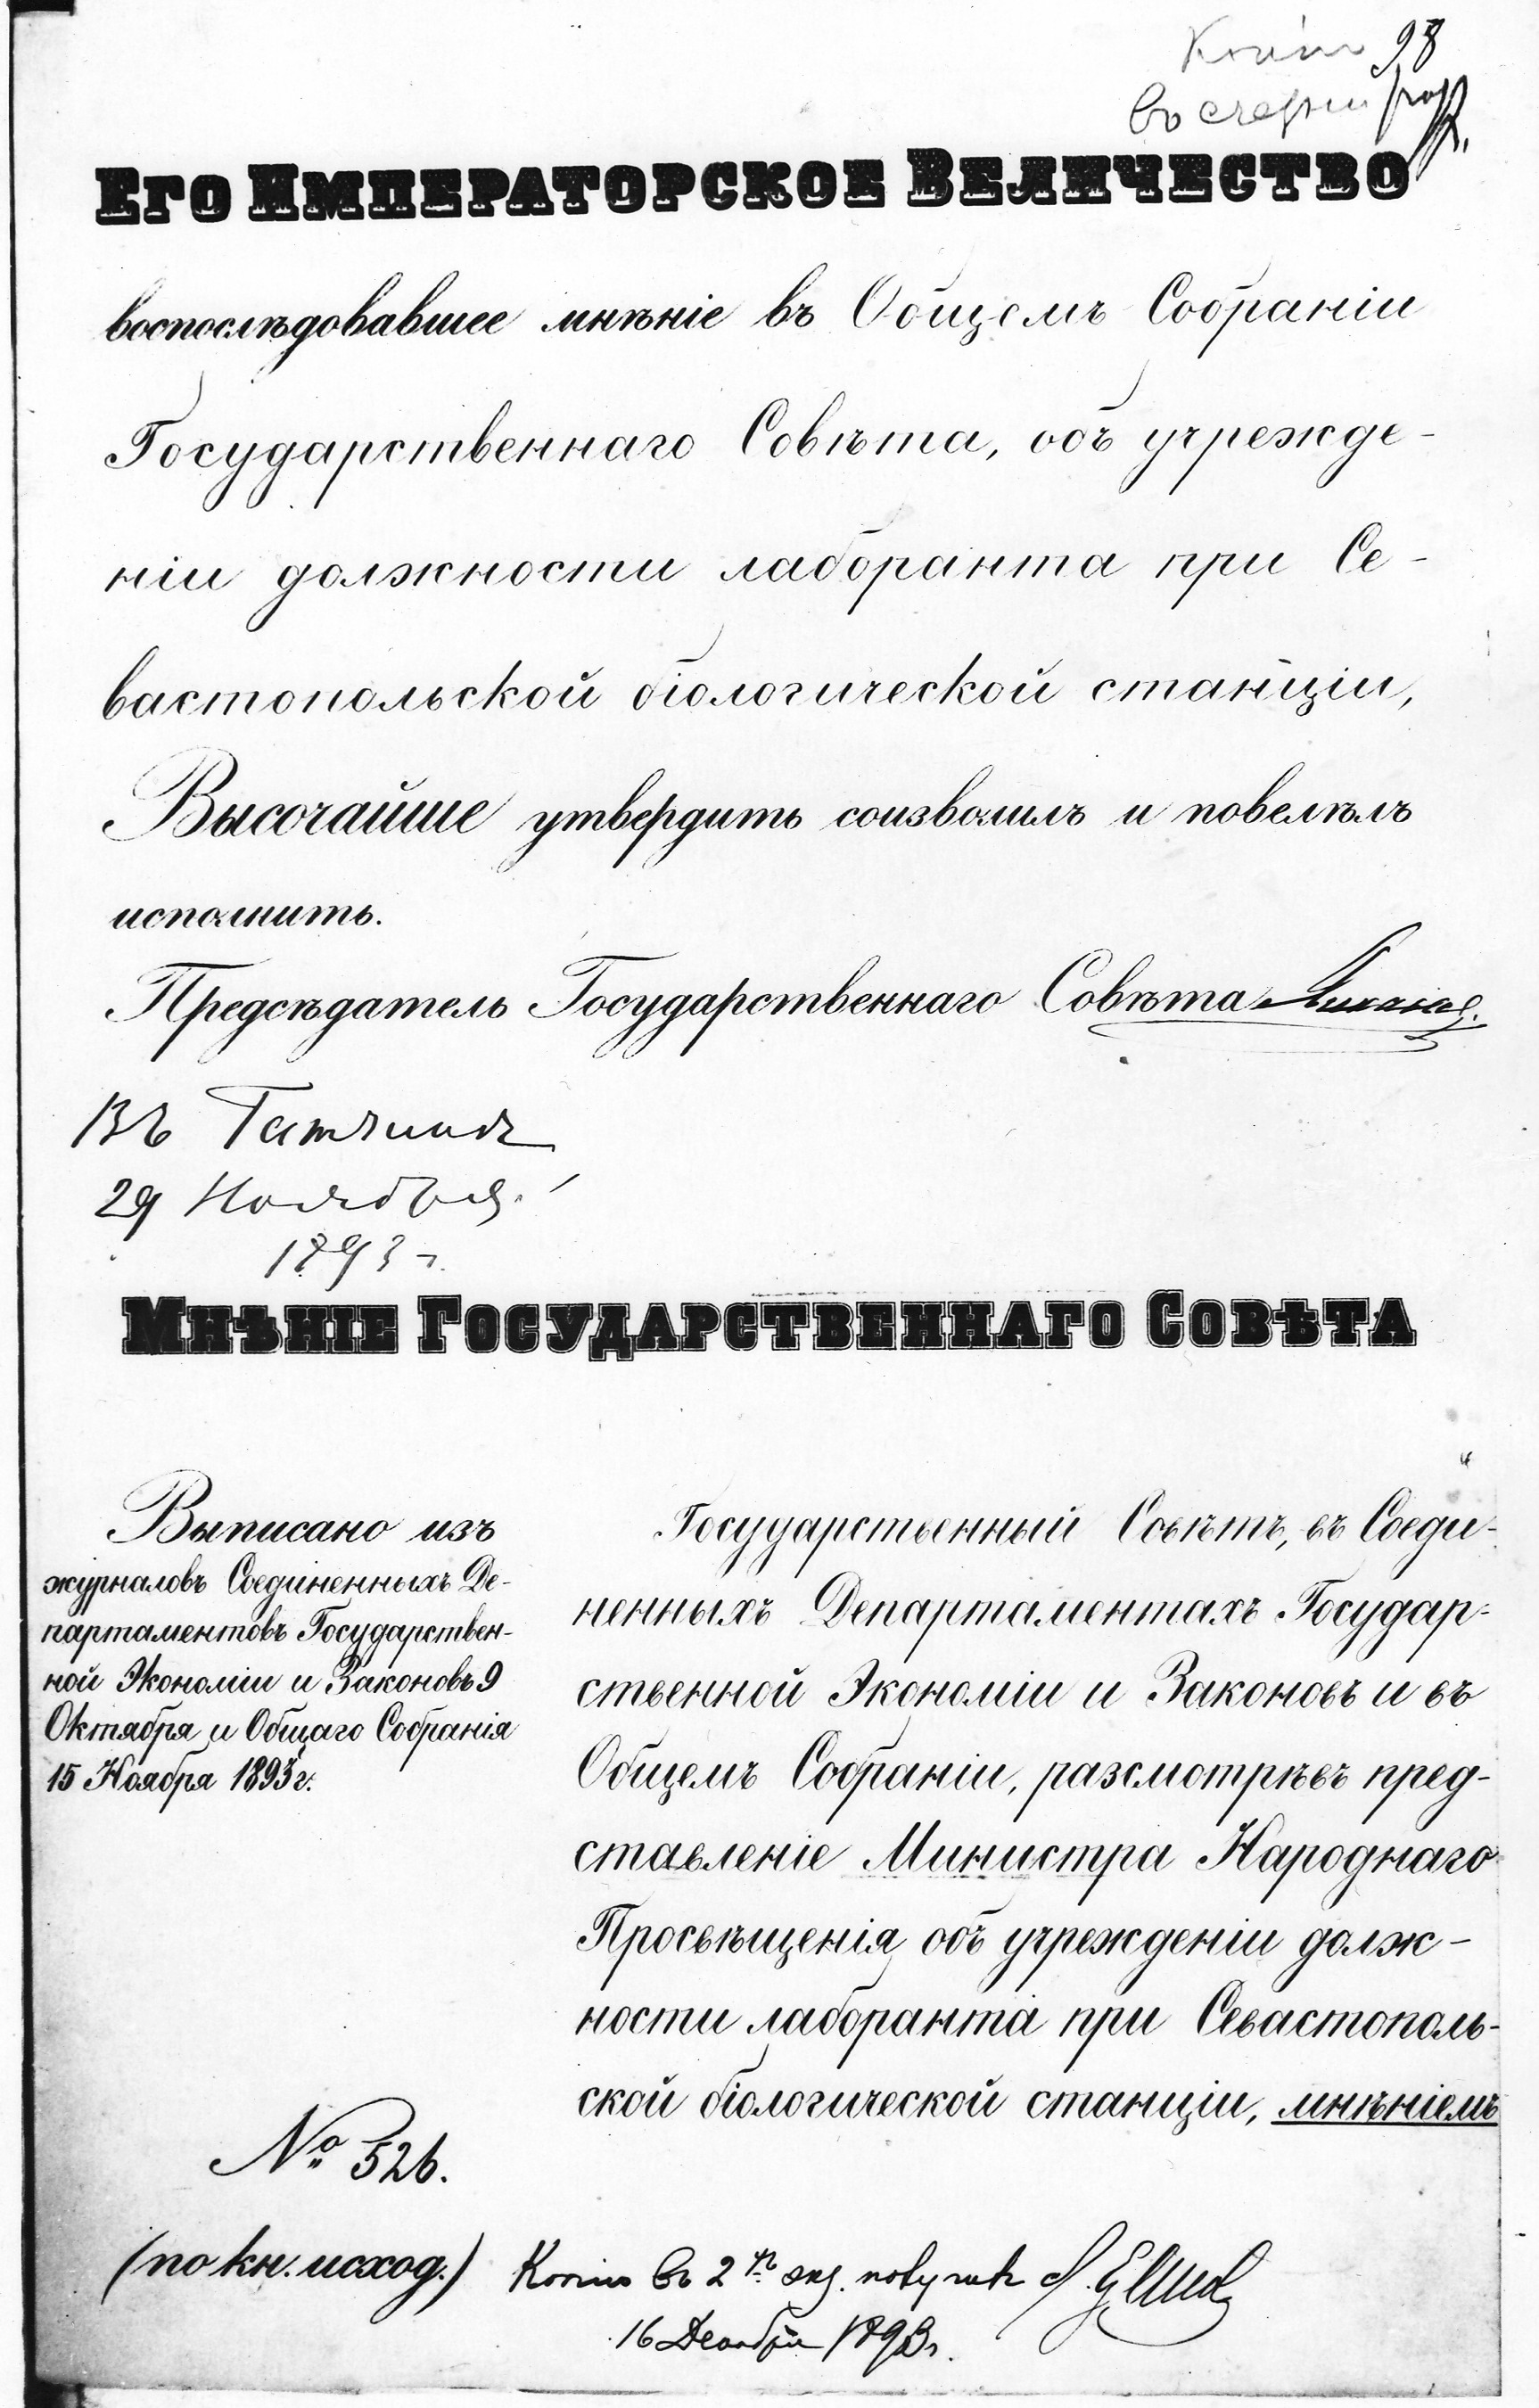 Копію 98
ЕГО ИМПЕРАТОРСКОЕ ВЕЛИЧЕСТВО
воспослѣдовавшее мнѣніе въ Общемъ Собраніи
Государственнаго Совѣта, объ учрежде-
ніи должности лаборанта при Се-
вастопольской біологической станціи,
Высочайше утвердить соизволилъ и повелѣлъ
исполнить.
Предсѣдатель Государственнаго Совѣта Михаилъ.
Въ Гатчинѣ
29 Ноября
1893 г.
МНѢНІЕ ГОСУДАРСТВЕННАГО СОВѢТА
Выписано изъ
журналовъ Соединенныхъ Де-
партаментовъ Государствен-
ной Экономіи и Законовъ 9
Октября и Общаго Собранія
15 Ноября 1893 г.
Государственный Совѣтъ, въ Соеди-
ненныхъ Департаментахъ Государ-
ственной Экономіи и Законовъ и въ
Общемъ Собраніи, разсмотрѣвъ пред-
ставленіе Министра Народнаго
Просвѣщенія объ учрежденіи долж-
ности лаборанта при Севастополь-
ской біологической станціи, мнѣніемъ
№ 526.
(по кн. исход.)
Копію въ 2хъ экз. получилъ
16 Декабря 1893 г.